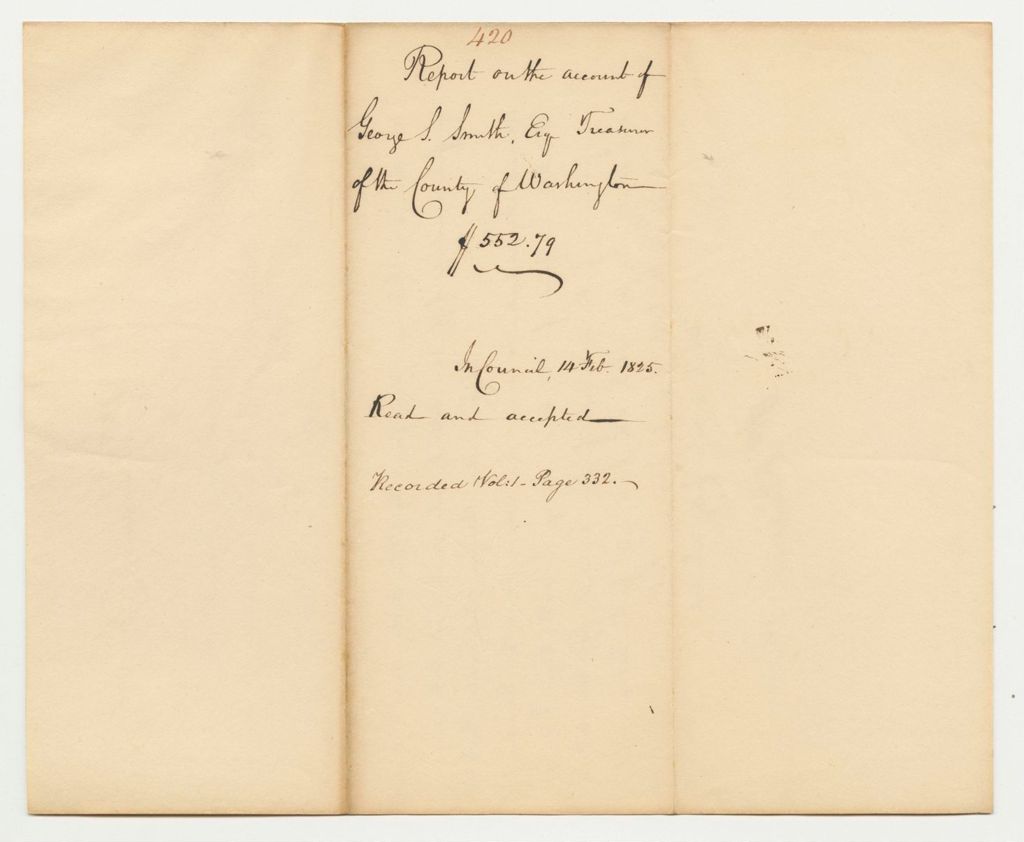 420
Report on the account of
George S. Smith, Esq Treasurer
of the County of Washington
$552.79
In Council, 14 Feb. 1825.
Read and accepted
Recorded Vol: 1 - Page 332.